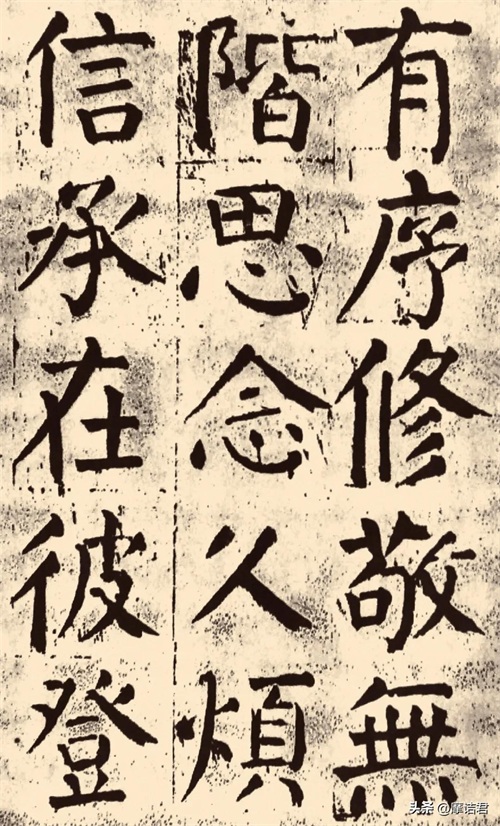 有序修敬無
階思念久煩
信承在彼登
头条@摩诘君